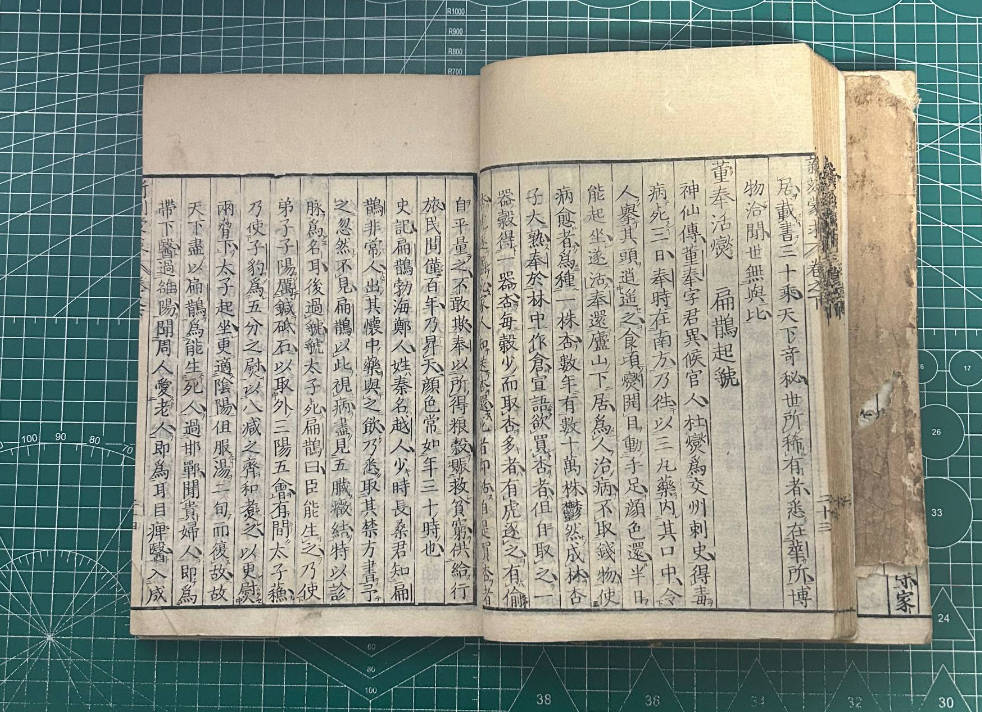 居載書三十乘天下奇秘世所稀有者悉在華所博
物洽聞世無與比
董奉活燮 扁鵲起虢
神仙傳董奉字君異候官人杜燮爲交州刺史得毒
病死三日奉時在南方乃徃以三丸藥内其口中令
人舉其頭逍遥之食頃燮開目動手足顔色還半日
能起坐遂活奉還廬山下居爲人治病不取錢物使
病愈者爲種一株杏數年有數十萬株鬱然成林杏
子大熟奉於林中作倉宣語欲買杏者但自取之一
器穀得一器杏每穀少而取杏多者有虎逐之有偷
自是買杏者
自平量之不敢欺奉以所得粮穀賑救貧窮供給行
旅民間僅百年乃昇天顔色常如年三十時也
史記扁鵲勃海鄭人姓秦名越人少時長桑君知扁
鵲非常人出其懷中藥與之飲乃悉取其禁方書予
之忽然不見扁鵲以此視病盡見五臟癥結特以診
脉爲名耳後過虢虢太子死扁鵲曰臣能生之乃使
弟子子陽厲鍼砥石以取外三陽五會有間太子蘇
乃使子豹爲五分之熨以八減之齊和煮之以更熨
兩脅下太子起坐更適陰陽但服湯二旬而復故故
天下盡以扁鵲爲能生死人過邯鄲聞貴婦人即爲
帶下醫過維陽聞周人愛老人即爲耳目痺醫入咸